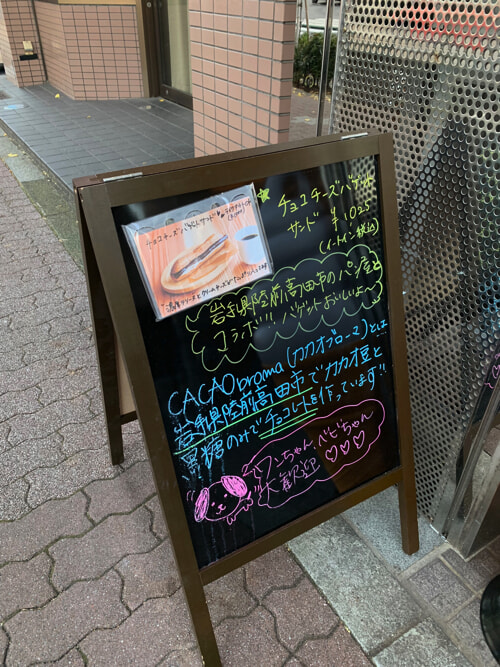 チョコチーズバゲット
サンド ¥1025
(イートイン税込)
チョコチーズバゲットサンド
岩手県陸前高田市のパン屋と
コラボ!!バゲットおいしいよ〜
CACAObroma(カカオブローマ)とは
岩手県陸前高田市でカカオ豆と
黒糖のみでチョコレートを作っています!!
ワンちゃん、ベビちゃん
大歓迎♡♡♡